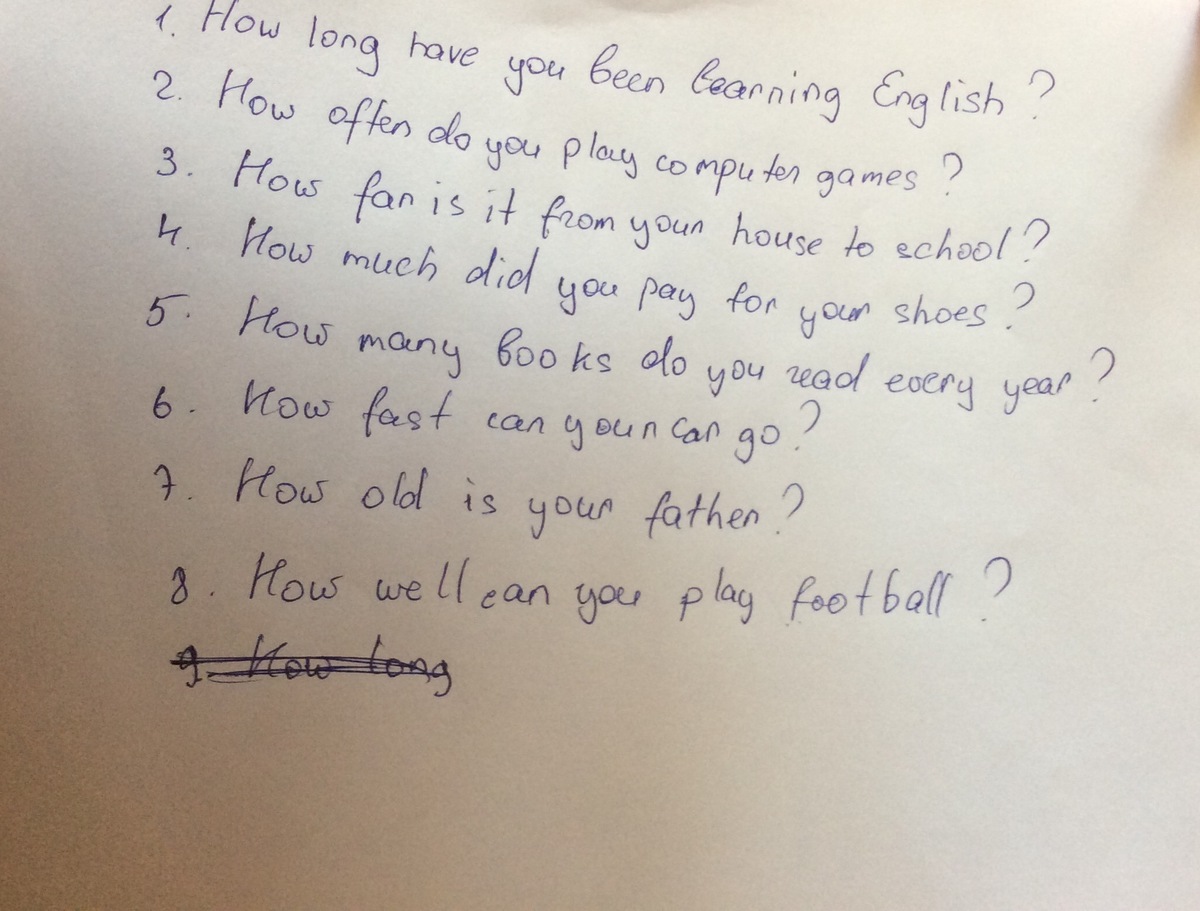 1. How long have you been learning English?
2. How often do you play computer games?
3. How far is it from your house to school?
4. How much did you pay for your shoes?
5. How many books do you read every year?
6. How fast can your car go?
7. How old is your father?
8. How well can you play football?
9. How long